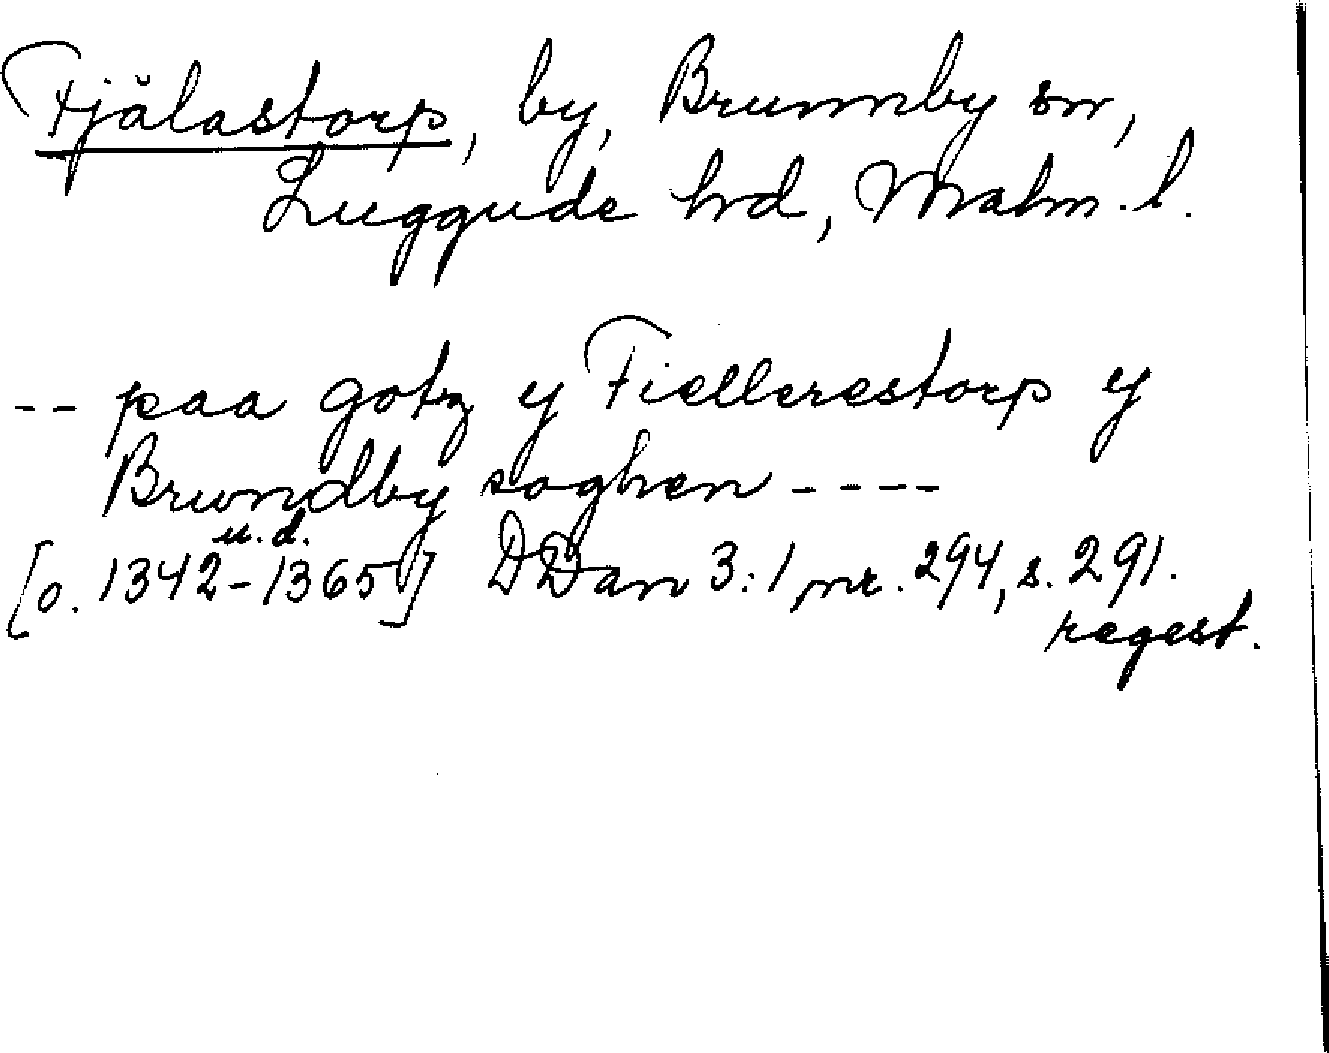 Fjälastorp, by, Brunnby sn,
Luggude hrd, Malm. l.
-- paa gotz y Fiellerestorp y
Brundby soghen ----
u. d.
[o. 1342-1365] DDan 3:1, nr. 294, s. 291.
regest.